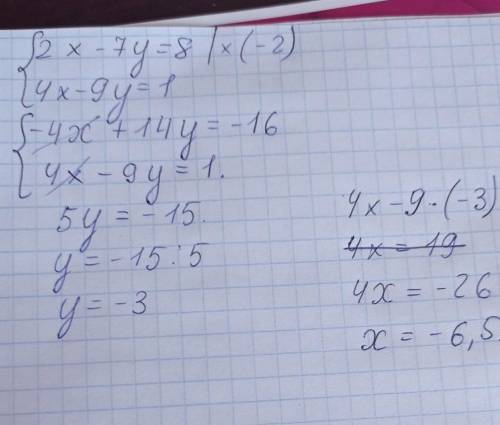 2x-7y=8 |x(-2)
4x-9y=1
-4x+14y=-16
4x-9y=1.
5y=-15.
y=-15:5
y=-3
4x-9·(-3)
4x=19
4x=-26
x=-6,5